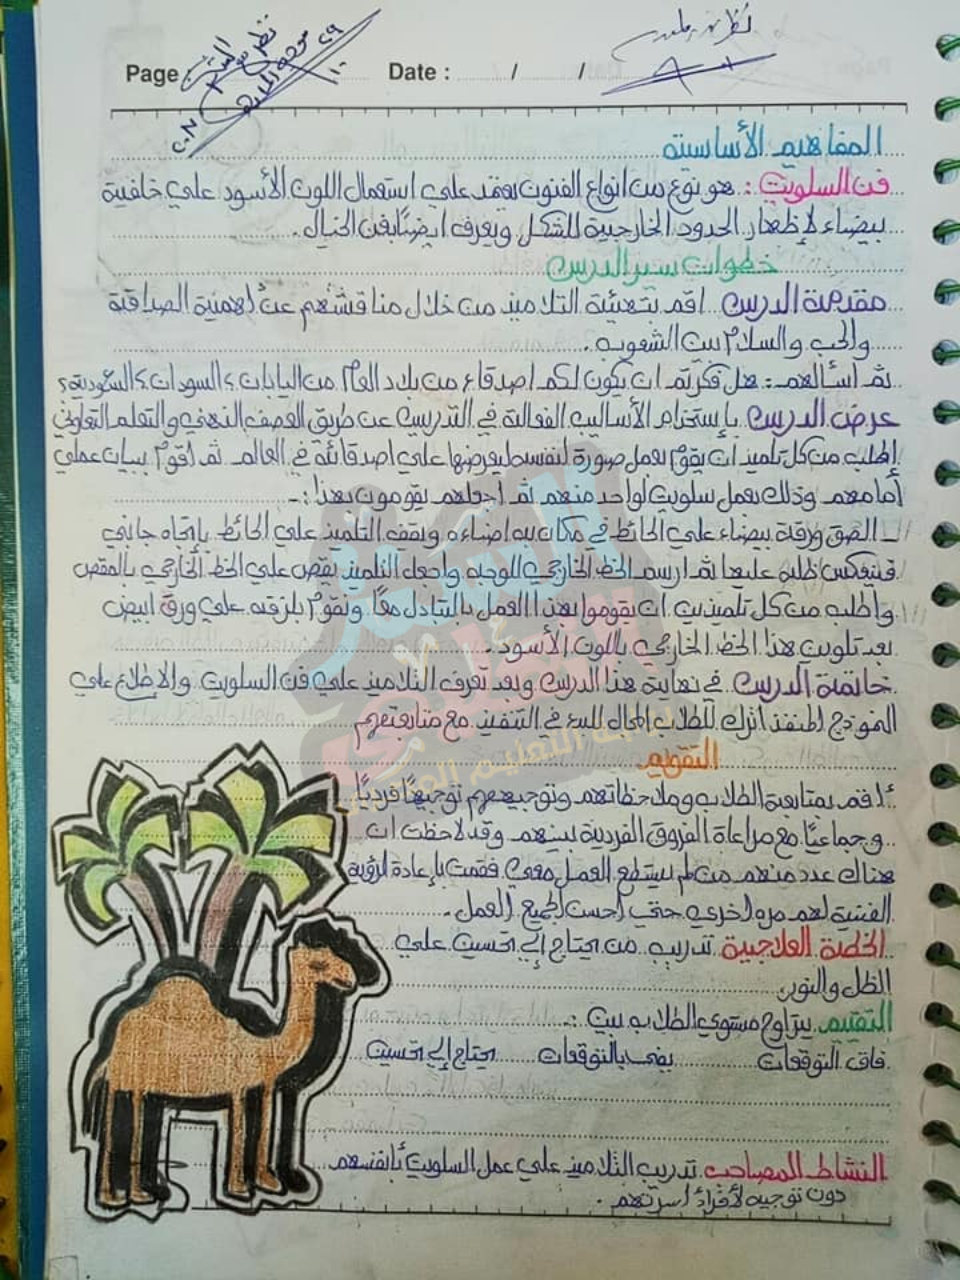 Page
Date : / /
المفاهيم الأساسية
فن السلويت :. هو نوع من انواع الفنون يعتمد علي استعمال اللون الأسود علي خلفية
بيضاء لإظهار الحدود الخارجية للشكل ويعرف ايضًا بفن الخيال .
خطوات سير الدرس
مقدمة الدرس اقم بتهيئة التلاميذ من خلال مناقشتهم عن أهمية الصداقة
والحب والسلام بين الشعوب .
ثم أسألهم :. هل فكرتم ان يكون لكم اصدقاء من بلاد العالم من اليابان ؟ السودان ؟ السعودية ؟
عرض الدرس بإستخدام الأساليب الفعالة في التدريس عن طريق العصف الذهني والتعلم التعاوني
اطلب من كل تلميذ ان يقوم بعمل صورة لنفسه ليعرضها علي اصدقائه في العالم ثم أقوم ببيان عملي
أمامهم وذلك بعمل سلويت لواحد منهم ثم أجعلهم يقومون بهذا :-
الصق ورقة بيضاء علي الحائط في مكان به اضاءه ويقف التلميذ علي الحائط بإتجاه جانبي
فينعكس ظله عليها ثم ارسم الخط الخارجي للوجه واجعل التلميذ يقص علي الخط الخارجي بالمقص
واطلب من كل تلميذين ان يقوموا بهذا العمل بالتبادل معًا ونقوم بلزقه علي ورق ابيض
بعد تلوين هذا الخط الخارجي باللون الأسود .
خاتمة الدرس في نهاية هذا الدرس وبعد تعرف التلاميذ علي فن السلويت والإطلاع علي
النموذج المنفذ اترك للطلاب المجال للبدء في التنفيذ مع متابعتهم
التقويم
أقم بمتابعة الطلاب وملاحظاتهم وتوجيههم توجيهًا فرديًا
وجماعيًا مع مراعاة الفروق الفردية بينهم وقد لاحظت ان
هناك عدد منهم من لم يستطع العمل معي فقمت بإعادة الرؤية
الفنية لهم مره اخري حتي أحسن الجميع العمل .
الخطة العلاجية تدريب من يحتاج إلي تحسين علي
الظل والنور
التقييم يتراوح مستوي الطلاب بين :.
فاق التوقعات يفي بالتوقعات يحتاج إلي تحسين
النشاط المصاحب تدريب التلاميذ علي عمل السلويت بأنفسهم
دون توجيه لأفراد أسرتهم .